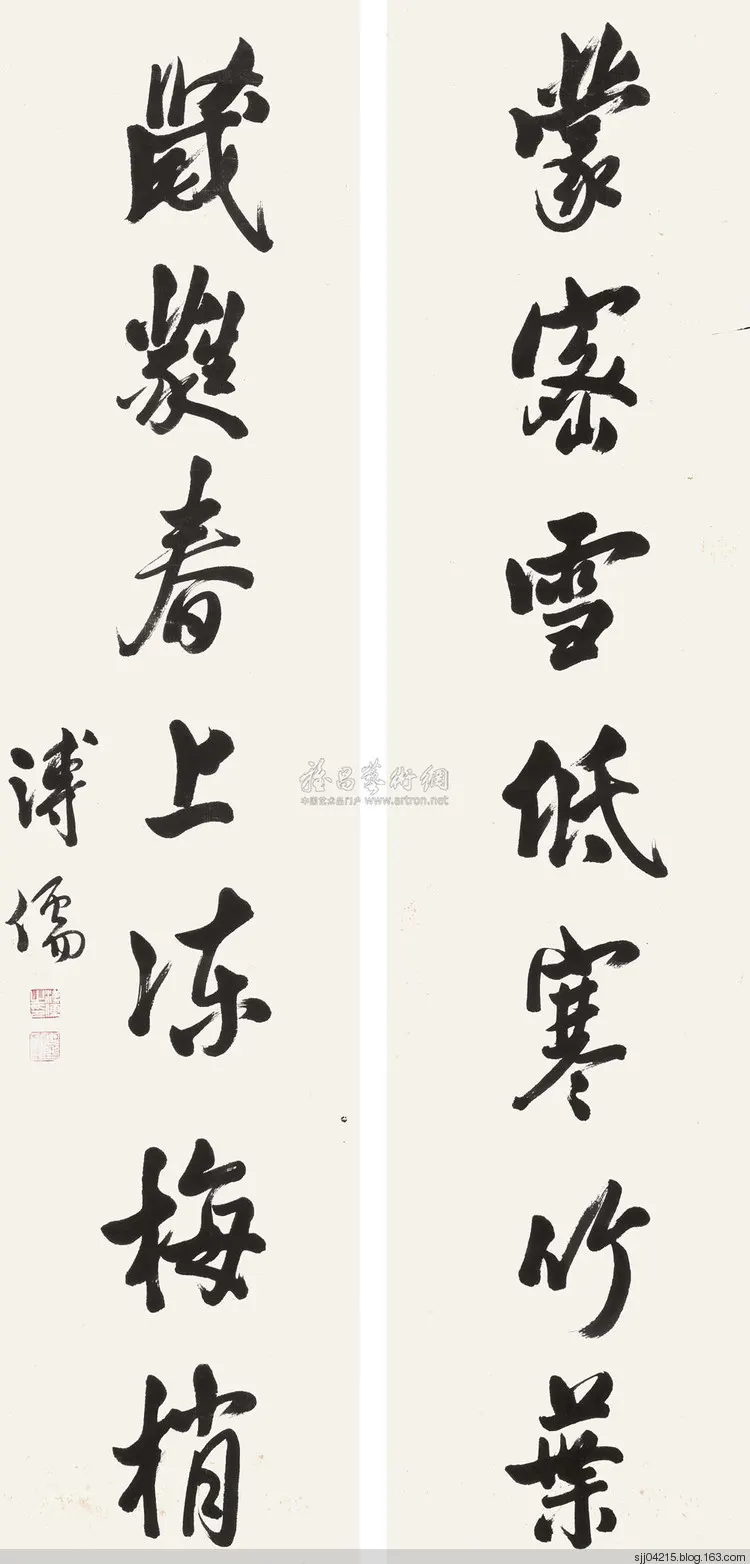 蒙密雪低寒竹葉
葳蕤春上凍梅梢
溥儒
雅昌藝術網
中国艺术品门户 www.artron.net
sjj04215.blog.163.com